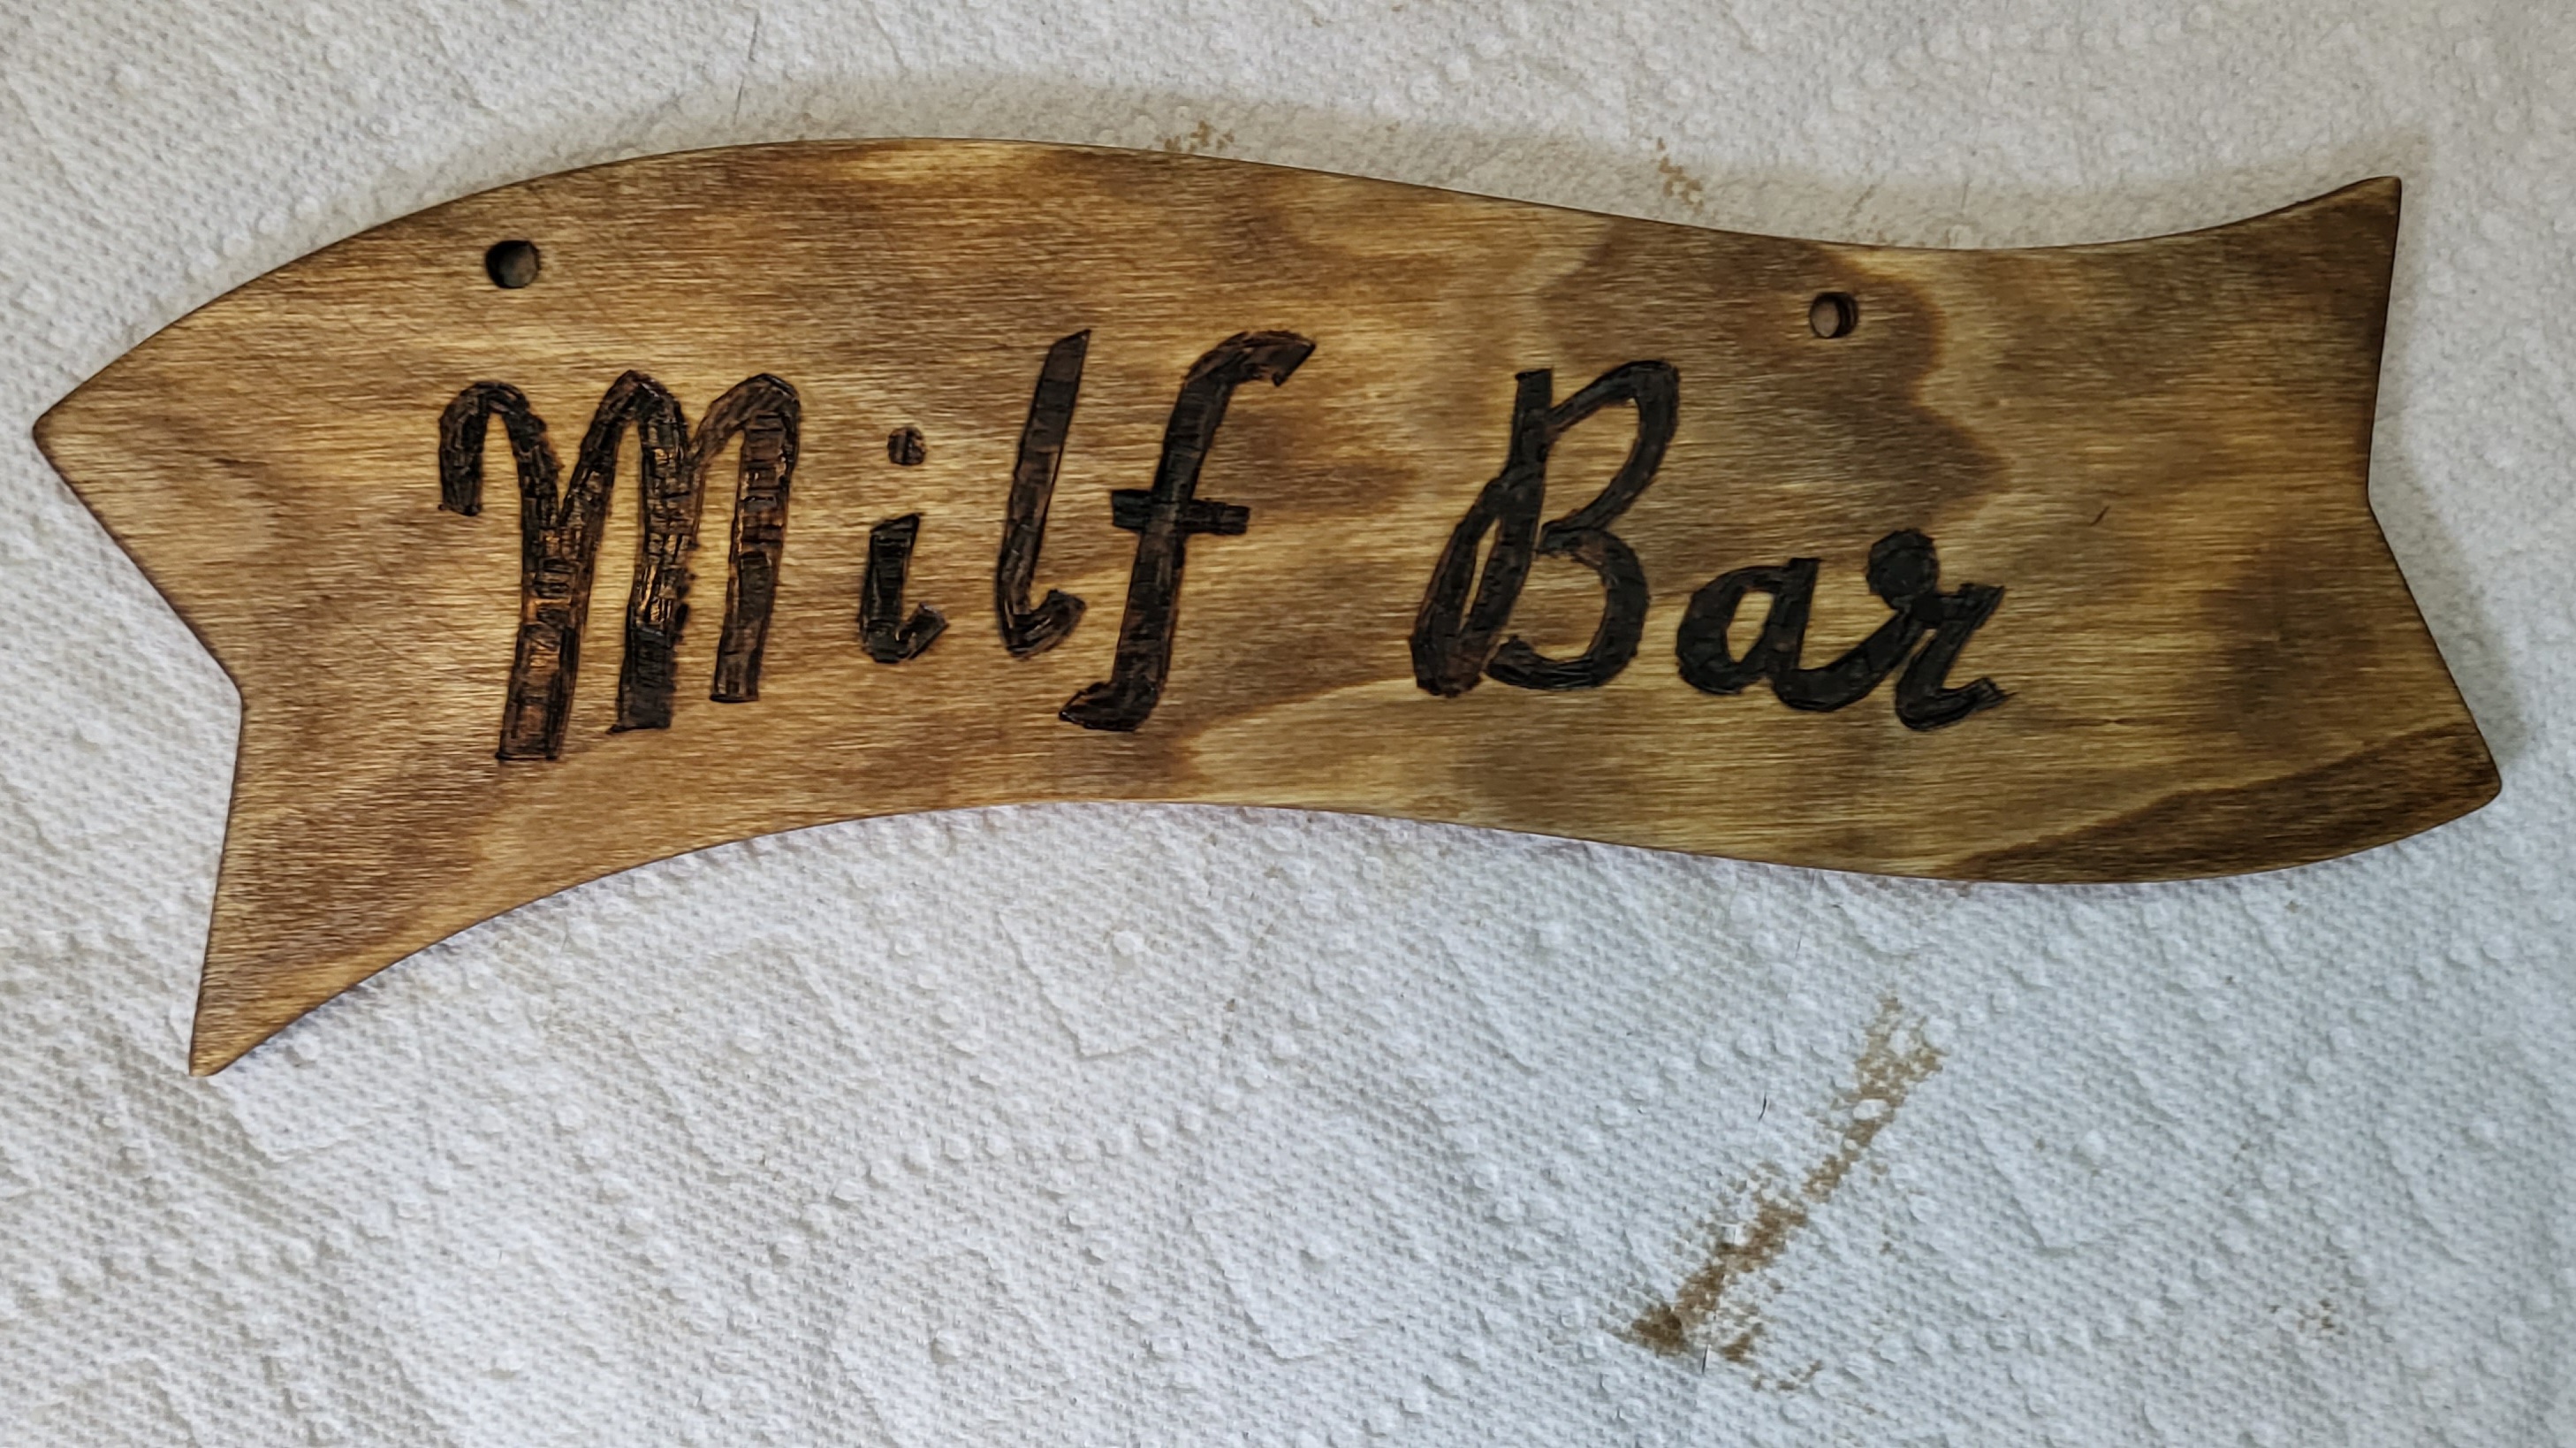 Milf Bar